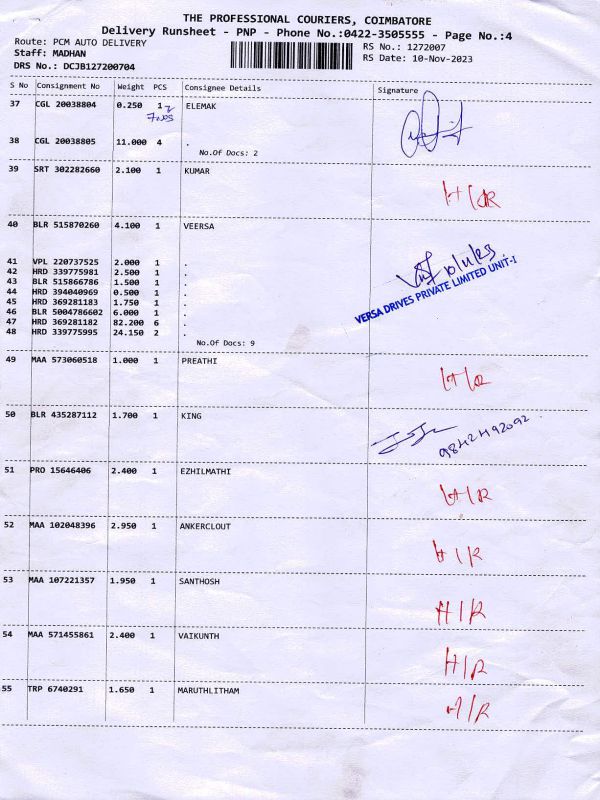 THE PROFESSIONAL COURIERS, COIMBATORE
Delivery Runsheet - PNP - Phone No.:0422-3505555 - Page No.:4
Route: PCM AUTO DELIVERY
RS No.: 1272007
Staff: MADHAN
RS Date: 10-Nov-2023
DRS No.: DCJB127200704
S No Consignment No Weight PCS Consignee Details Signature
37 CGL 20038804 0.250 1 ELEMAK
38 CGL 20038805 11.000 4 .
No.Of Docs: 2
39 SRT 302282660 2.100 1 KUMAR
H/R
40 BLR 515870260 4.100 1 VEERSA
41 VPL 220737525 2.000 1 .
42 HRD 339775981 2.500 1 .
43 BLR 515866786 1.500 1 .
44 HRD 394040969 0.500 1 .
45 HRD 369281183 1.750 1 .
46 BLR 5004786602 6.000 1 .
47 HRD 369281182 82.200 6 .
48 HRD 339775995 24.150 2 .
10/11/23
VERSA DRIVES PRIVATE LIMITED UNIT-I
No.Of Docs: 9
49 MAA 573060518 1.000 1 PREATHI
H/R
50 BLR 435287112 1.700 1 KING
9842492092
51 PRO 15646406 2.400 1 EZHILMATHI
H/R
52 MAA 102048396 2.950 1 ANKERCLOUT
H/R
53 MAA 107221357 1.950 1 SANTHOSH
H/R
54 MAA 571455861 2.400 1 VAIKUNTH
H/R
55 TRP 6740291 1.650 1 MARUTHLITHAM
H/R